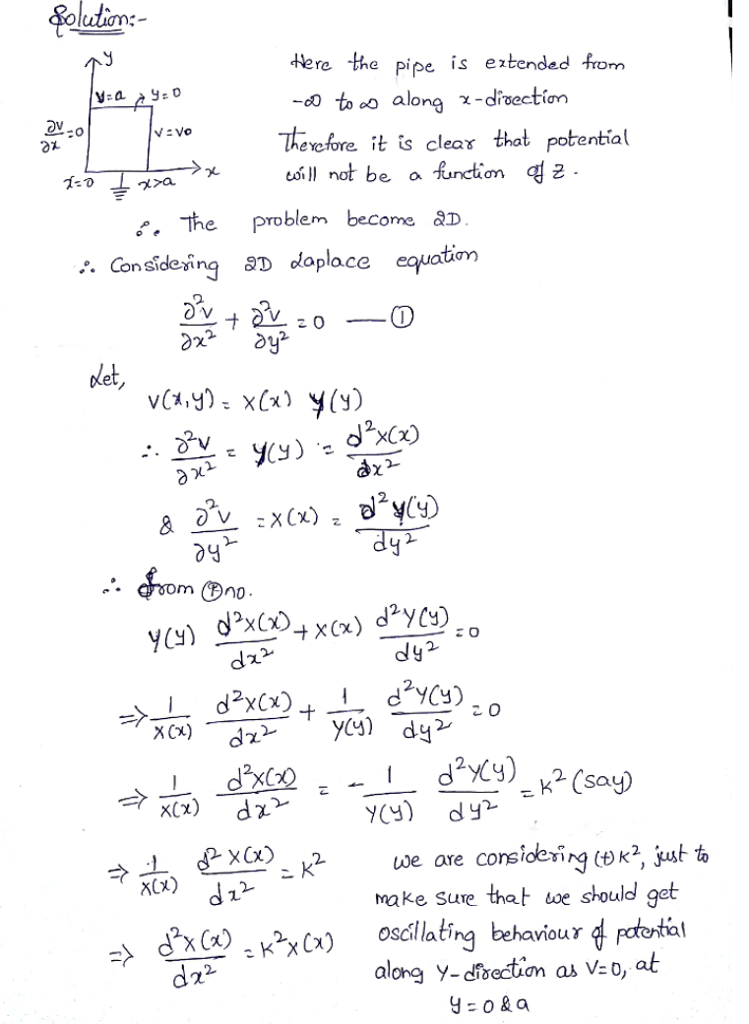 Solution:-
y
y=a y=0
∂v/∂x =0
v=vo
x
x=0 x>a
Here the pipe is extended from
-∞ to ∞ along x-direction
Therefore it is clear that potential
will not be a function of z.
∴ The problem become 2D.
∴ Considering 2D Laplace equation
∂²v/∂x² + ∂²v/∂y² = 0 — ①
Let,
v(x,y) = X(x) Y(y)
∴ ∂²v/∂x² = Y(y) = d²X(x)/dx²
& ∂²v/∂y² = X(x) = d²Y(y)/dy²
∴ from ① no.
Y(y) d²X(x)/dx² + X(x) d²Y(y)/dy² = 0
⇒ 1/X(x) d²X(x)/dx² + 1/Y(y) d²Y(y)/dy² = 0
⇒ 1/X(x) d²X(x)/dx² = - 1/Y(y) d²Y(y)/dy² = K² (say)
⇒ 1/X(x) d²X(x)/dx² = K²
⇒ d²X(x)/dx² = K²X(x)
we are considering (+) K², just to
make sure that we should get
oscillating behaviour of potential
along Y-direction as V=0, at
y=0 & a